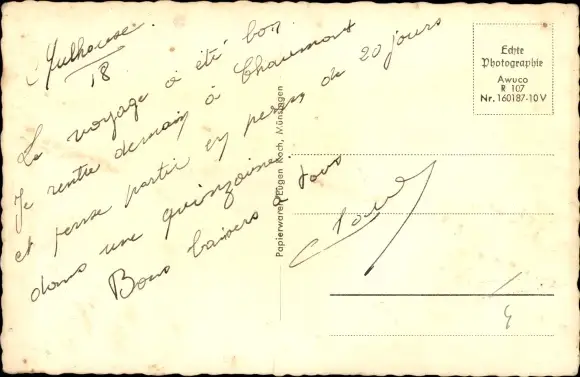 Mulhouse.
18
Le voyage a été bon
Je rentre demain à Chaumont
et pense partir en perm de 20 jours
dans une quinzaine.
Bons baisers à tous
Echte
Photographie
Awuco
R 107
Nr. 160187-10 V
Papierwaren Eugen Koch, Münsingen